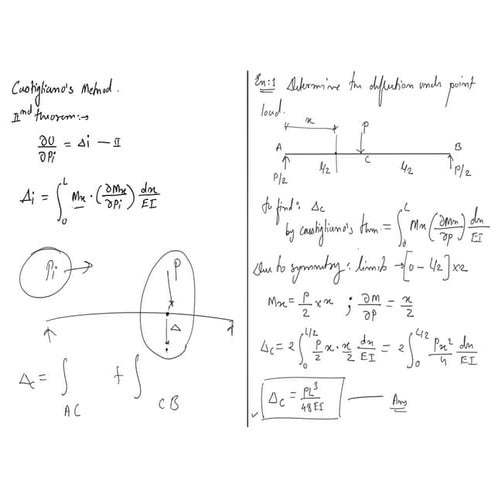 Castigliano's Method.
IInd theorem:→
∂U/∂Pi = Δi — II
Δi = ∫₀ᴸ Mx · (∂Mx/∂Pi) dx/EI
Pi
P
Δ
Δ = ∫ AC + ∫ CB
Ex:1 Determine the deflection under point
load.
x
P
A
B
C
P/2
L/2
L/2
P/2
To find: Δc
by castigliano's thm = ∫₀ᴸ Mx (∂Mx/∂P) dx/EI
Due to symmetry: limits → [0 – L/2] x2
Mx = P/2 × x ; ∂M/∂P = x/2
Δc = 2 ∫₀^L/2 P/2 x · x/2 dx/EI = 2 ∫₀^L/2 Px²/4 dx/EI
Δc = PL³/48EI — Ans